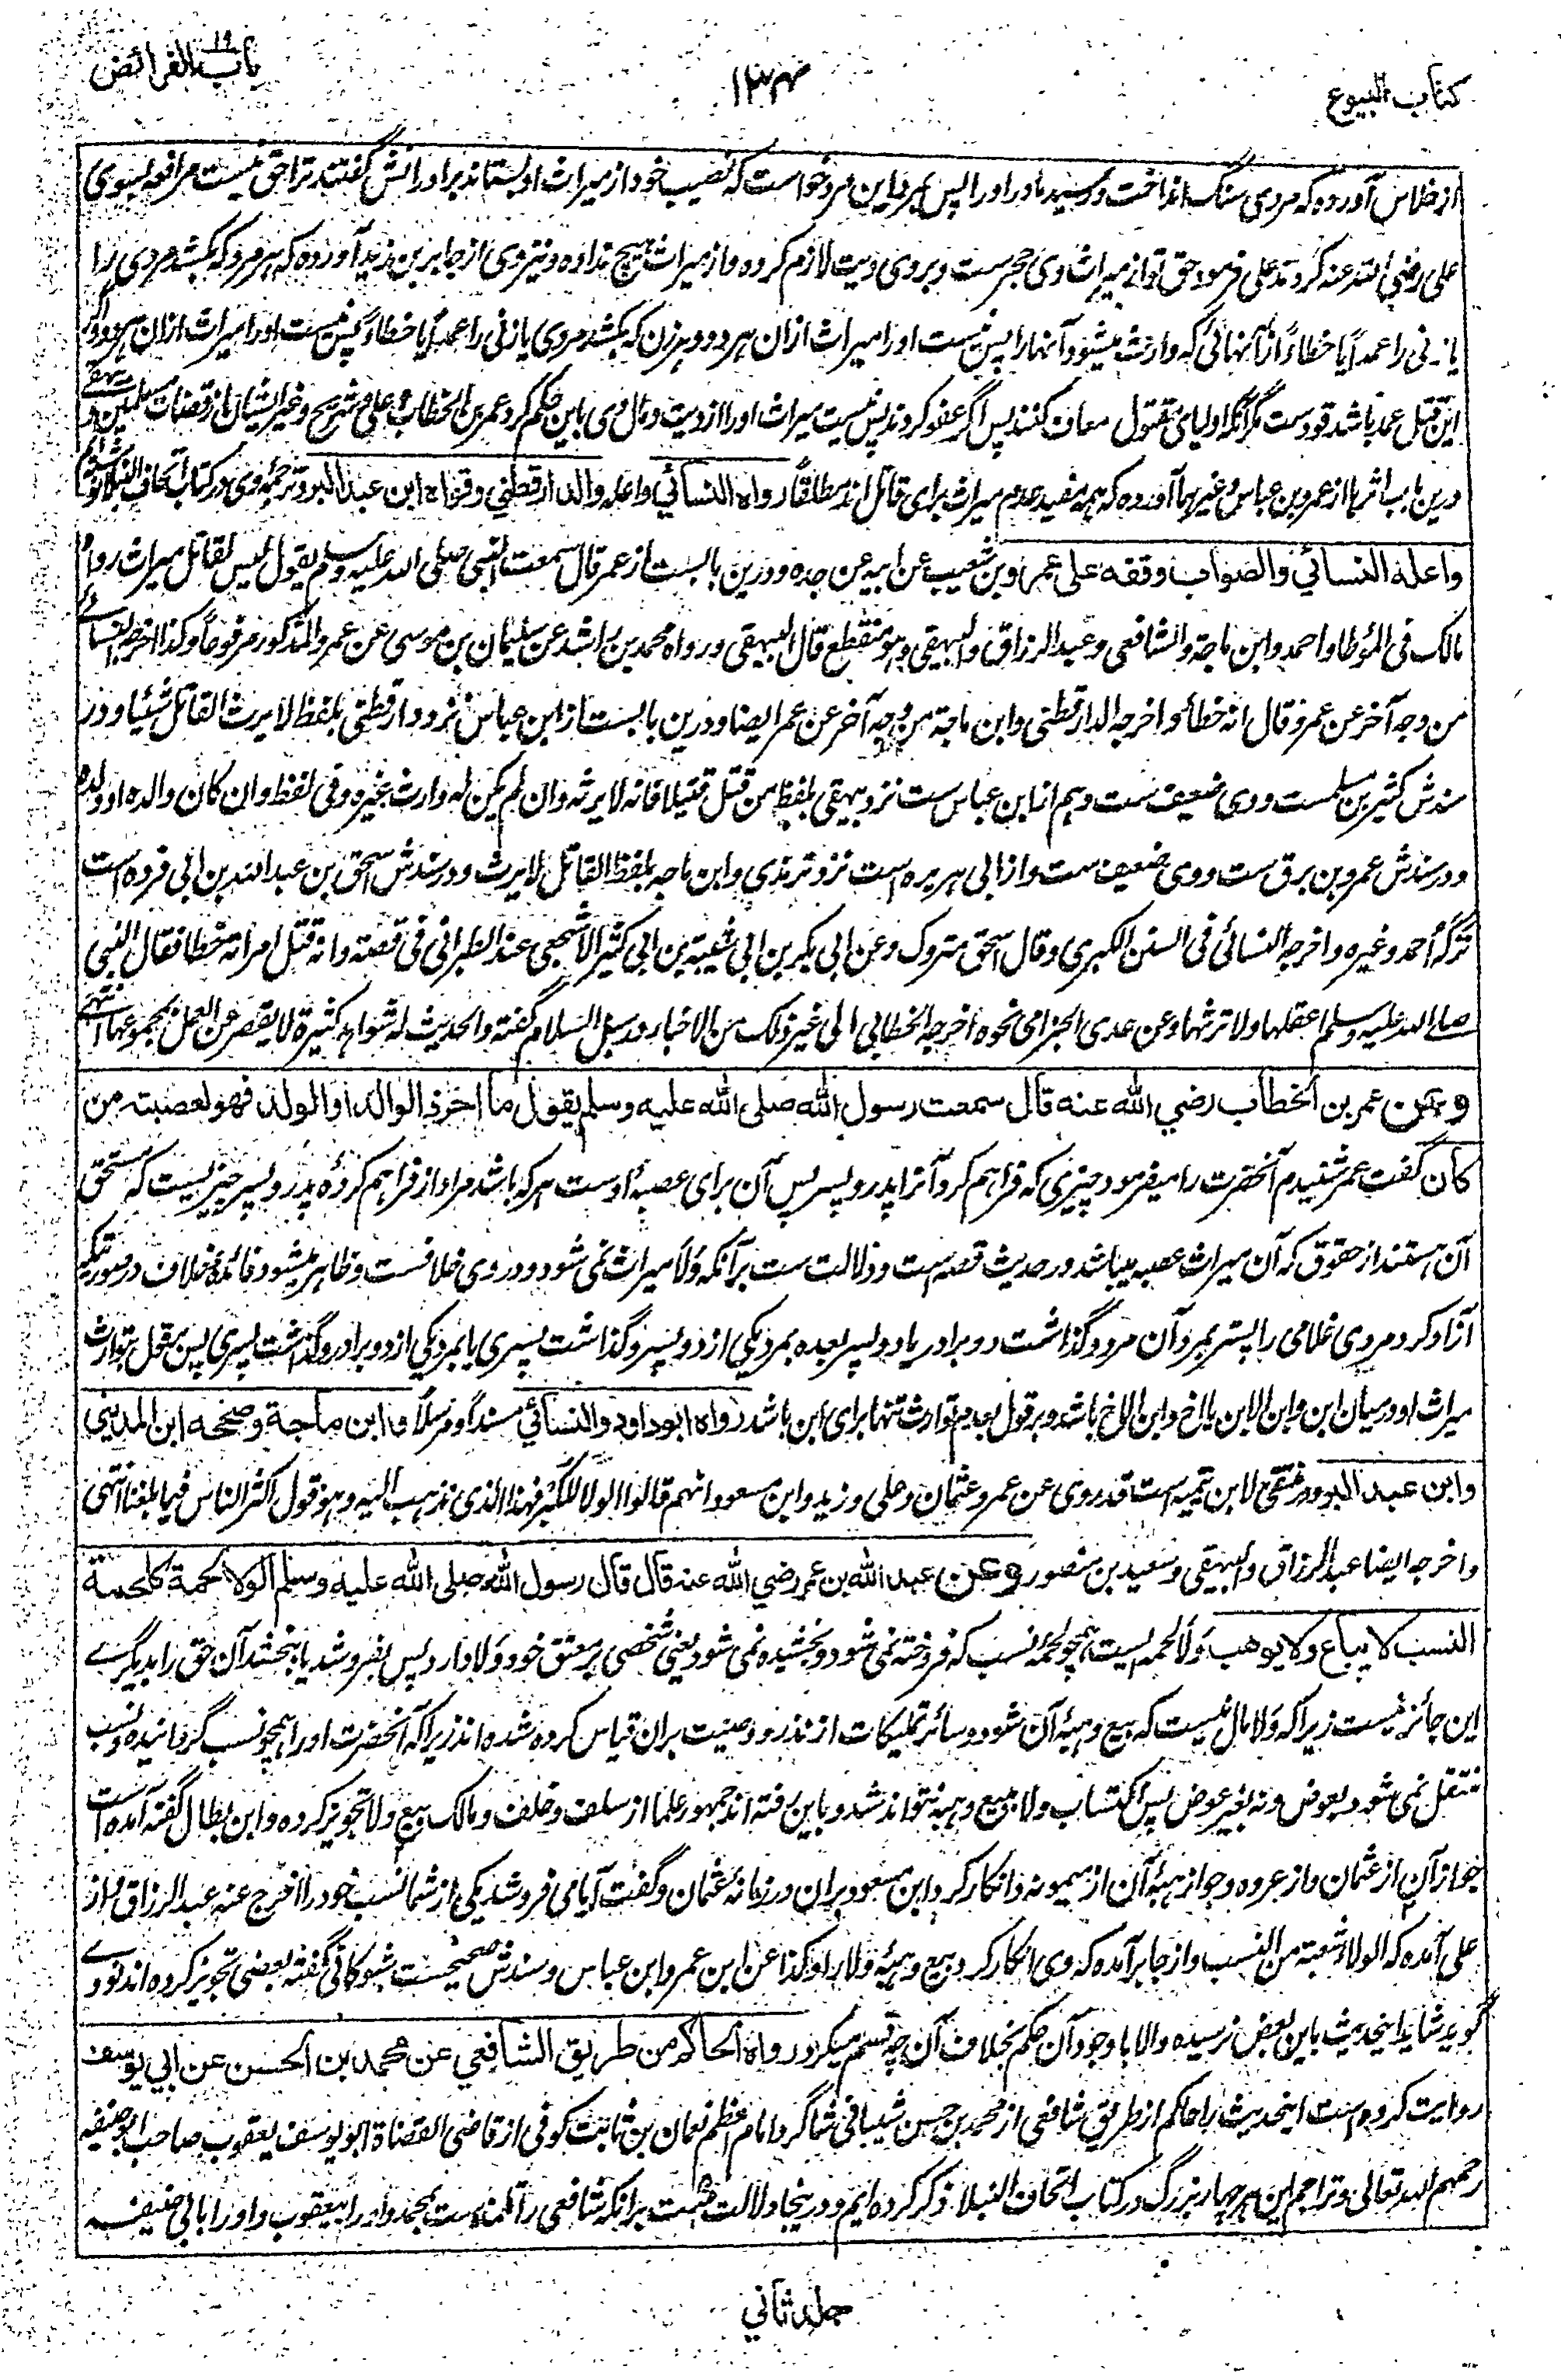 كتاب البيوع
۱۳۴
باب الفرائض
از خلاس آورده که مردی سنگ انداخت و رسید مادر او را پس بمرد این مرد خواست که نصیب خود از میراث او بستاند برادرانش گفتند ترا حق نیست مرافعه بسوی
علی رضی الله عنه کردند علی فرمود حق تو از میراث وی حجرست و بروی دیت لازم کرده و از میراث هیچ نداده و نیز وی از جابر بن زید آورده که هر مرد که بکشد مردی را
یا زنی را عمداً یا خطاءً ازانهائی که وارث میشود آنها را پس نیست او را میراث ازان هر دو و هر زن که بکشد مردی یا زنی را عمداً یا خطاءً پس نیست او را میراث ازان هر دو و اگر
این قتل عمد باشد قودست مگر آنکه اولیای مقتول معاف کنند پس اگر عفو کردند پس نیست میراث او را از دیت و مال وی باین حکم کرد عمر بن الخطاب و علی و شریح و غیر ایشان از قضات مسلمین و بیهقی
درین باب اثرها از عمر و بن عباس و غیرهما آورده که همه مفید عدم میراث برای قاتل اند مطلقاً رواه النسائي واعله والدارقطني وقواه ابن عبد البر و ترجمه وی در کتاب اتحاف النبلا نوشته ایم
واعله النسائي والصواب وقفه على عمرو بن شعيب عن ابيه عن جده و درین بابست از عمر قال سمعت النبي صلى الله عليه وسلم يقول ليس لقاتل ميراث رواه
مالك فى المؤطا واحمد وابن ماجة والشافعى وعبد الرزاق والبيهقى وهو منقطع قال البيهقى ورواه محمد بن راشد عن سليمان بن موسى عن عمرو المذكور مرفوعاً وكذا اخرجه النسائے
من وجه آخر عن عمرو قال انه خطأ واخرجه الدارقطنى وابن ماجة من وجه آخر عن عمر ايضا و درین بابست از ابن عباس نزد دارقطنی بلفظ لا يرث القاتل شيئا و در
سندش کثیر بن مسلمست و وی ضعیف ست و هم از ابن عباس ست نزد بیهقی بلفظ من قتل قتيلا فانه لا يرثه وان لم يكن له وارث غيره وفى لفظ وان كان والده او ولده
و در سندش عمرو بن برق ست و وی ضعیف ست و از ابی هریره است نزد ترمذی و ابن ماجه بلفظ القاتل لا يرث و در سندش اسحق بن عبد الله بن ابی فروه است
تركه احمد وغيره واخرجه النسائى فى السنن الكبرى وقال اسحق متروك وعن ابى بكر بن ابى شيبة بن ابى كثير الاشجعى عند الطبرانى فى قصة وانه قتل امراته خطأ فقال النبي
صلے الله عليه وسلم اعقلها ولا ترثها وعن عدى الجذامى نحوه اخرجه الخطابى الى غير ذلك من الاخبار در سبل السلام گفته والحديث له شواهد كثيرة لا يقصر عن العمل بمجموعها انتهى
وعن عمر بن الخطاب رضي الله عنه قال سمعت رسول الله صلى الله عليه وسلم يقول ما احرز الوالد او الولد فهو لعصبته من
كان گفت عمر شنیدم آنحضرت را میفرمود چیزی که فراهم کرد آنرا پدر و پسر پس آن برای عصبهٔ اوست هر که باشد مراد از فراهم کردهٔ پدر و پسر چیزیست که مستحق
آن هستند از حقوق که آن میراث عصبه میباشد در حدیث قصه ایست و دلالت ست بر آنکه ولا میراث نمی شود و در وی خلافست و ظاهر میشود فائدهٔ خلاف در صورتیکه
آزاد کرد مردی غلامی را پستر بمرد آن مرد و گذاشت دو برادر یا دو پسر بعده بمرد یکی از دو پسر و گذاشت پسری یا بمرد یکی از دو برادر و گذاشت پسری پس بر قول بتوارث
میراث او درمیان ابن و ابن الابن یا اخ و ابن الاخ باشد و بر قول بعدم توارث تنها برای ابن باشد رواه ابو داود والنسائي مسنداً ومرسلاً وابن ماجة وصححه ابن المديني
وابن عبد البر و در منتقی لابن تیمیه است قد روى عن عمر وعثمان وعلى وزيد وابن مسعود انهم قالوا الولا للكبر فهذا الذى نذهب اليه وهو قول اكثر الناس فيما بلغنا انتهى
واخرجه ايضا عبد الرزاق والبيهقى وسعيد بن منصور وعن عبد الله بن عمر رضي الله عنه قال قال رسول الله صلى الله عليه وسلم الولا لحمة كلحمة
النسب لا يباع ولا يوهب ولا لحمه ایست همچو لحمهٔ نسب که فروخته نمی شود و بخشیده نمی شود یعنی شخصی بر معتق خود ولا دارد پس بفروشد یا ببخشد آن حق را بدیگرے
این جائز نیست زیرا که ولا مال نیست که بیع و هبهٔ آن شود و سائر تملیکات از نذر و وصیت بران قیاس کرده شده اند زیرا که آنحضرت او را همچو نسب گردانیده و نسب
منتقل نمی شود بعوض و نه بغیر عوض پس اکتساب ولا ببیع و هبه نتواند شد و باین رفته اند جمهور علما از سلف و خلف و مالک بیع ولا تجویز کرده و ابن بطال گفته آمده است
جواز آن از عثمان و از عروه و جواز هبهٔ آن از میمونه و انکار کرد ابن مسعود بران در زمانهٔ عثمان و گفت آیا می فروشد یکی از شما نسب خود را اخرج عنه عبد الرزاق و از
علی آمده که الولا شعبة من النسب و از جابر آمده که وی انکار کرد بیع و هبهٔ ولا را و کذا عن ابن عمر وابن عباس و سندش صحیحست شوکانی گفته بعضی تجویز کرده اند نووے
گوید شاید اینحدیث باین بعض نرسیده والا با وجود آن حکم بخلاف آن چه قسم میکرد رواه الحاكم من طريق الشافعي عن محمد بن الحسن عن ابي يوسف
روایت کرده است اینحدیث را حاکم از طریق شافعی از محمد بن حسن شیبانی شاگرد امام اعظم نعمان بن ثابت کوفی از قاضی القضاة ابو یوسف یعقوب صاحب ابو حنیفه
رحمهم الله تعالی و تراجم این هر چهار بزرگ در کتاب اتحاف النبلا ذکر کرده ایم و درینجا دلالت ست برانکه شافعی را تلمذ است بمحمد و او را بیعقوب و او را بابی حنیفہ
جلد ثاني